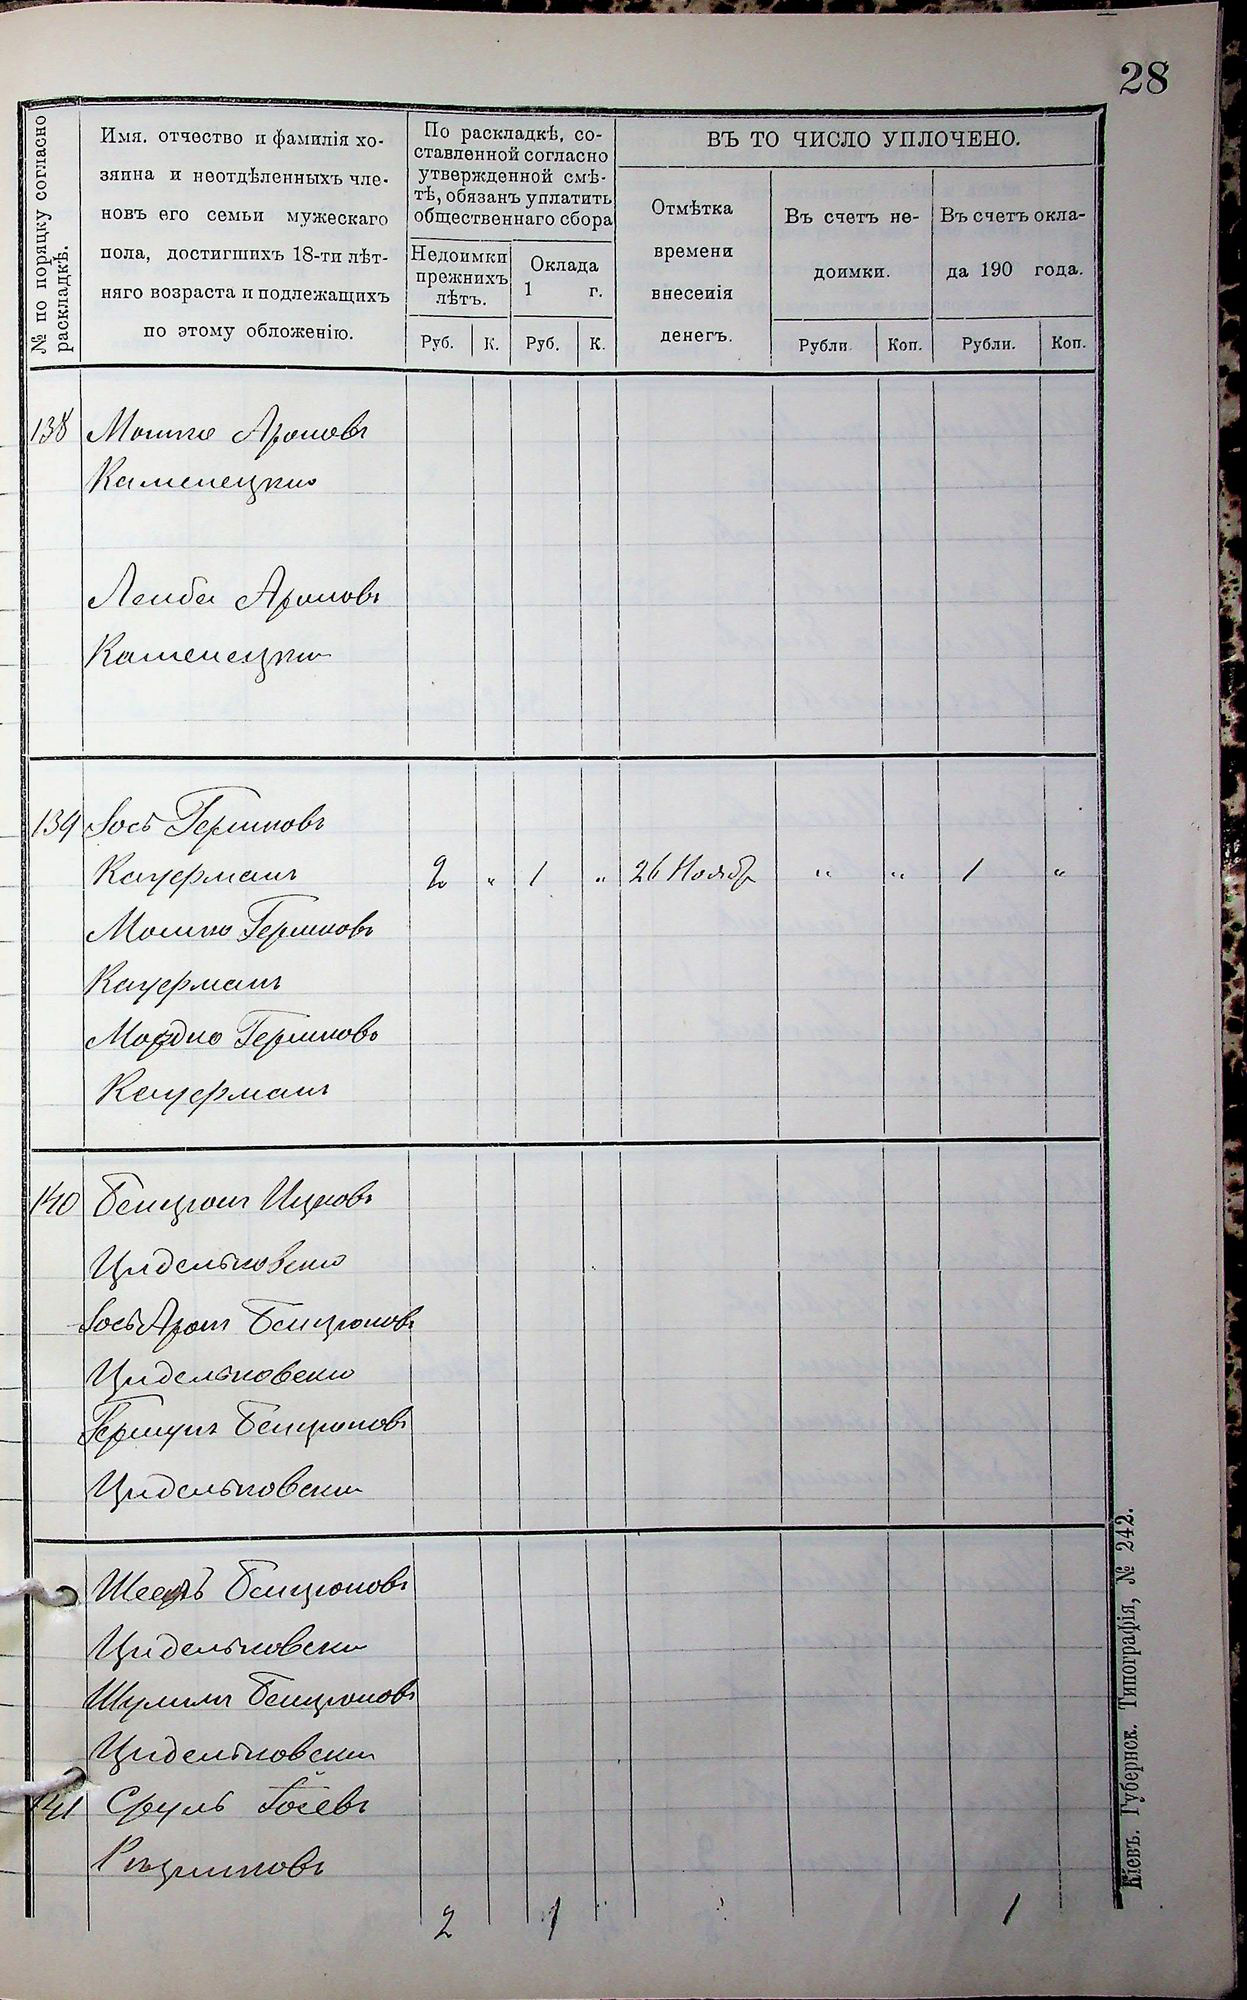 28
№ по порядку согласно
раскладкѣ.
Имя, отчество и фамилія хо-
зяина и неотдѣленныхъ чле-
новъ его семьи мужескаго
пола, достигшихъ 18-ти лѣт-
няго возраста и подлежащихъ
по этому обложенію.
По раскладкѣ, со-
ставленной согласно
утвержденной смѣ-
тѣ, обязанъ уплатить
общественнаго сбора
Недоимки
прежнихъ
лѣтъ.
Оклада
1 г.
Руб. К. Руб. К.
ВЪ ТО ЧИСЛО УПЛОЧЕНО.
Отмѣтка
времени
внесенія
денегъ.
Въ счетъ не-
доимки.
Въ счетъ окла-
да 190 года.
Рубли Коп. Рубли. Коп.
138 Мошко Ароновъ
Каменецкій
Лейба Ароновъ
Каменецкій
139 Іось Гершковъ
Кацерманъ 2 " 1 " 26 Ноябр " " 1 "
Мошко Гершковъ
Кацерманъ
Мордко Гершковъ
Кацерманъ
140 Бенціонъ Ицковъ
Цидельковскій
Іось Аронъ Бенціоновъ
Цидельковскій
Гершунъ Бенціоновъ
Цидельковскій
Бенціоновъ
Цидельковскій
Шулимъ Бенціоновъ
Цидельковскій
141 Сруль Іосевъ
2 1 1
Кіевъ. Губернск. Типографія, № 242.